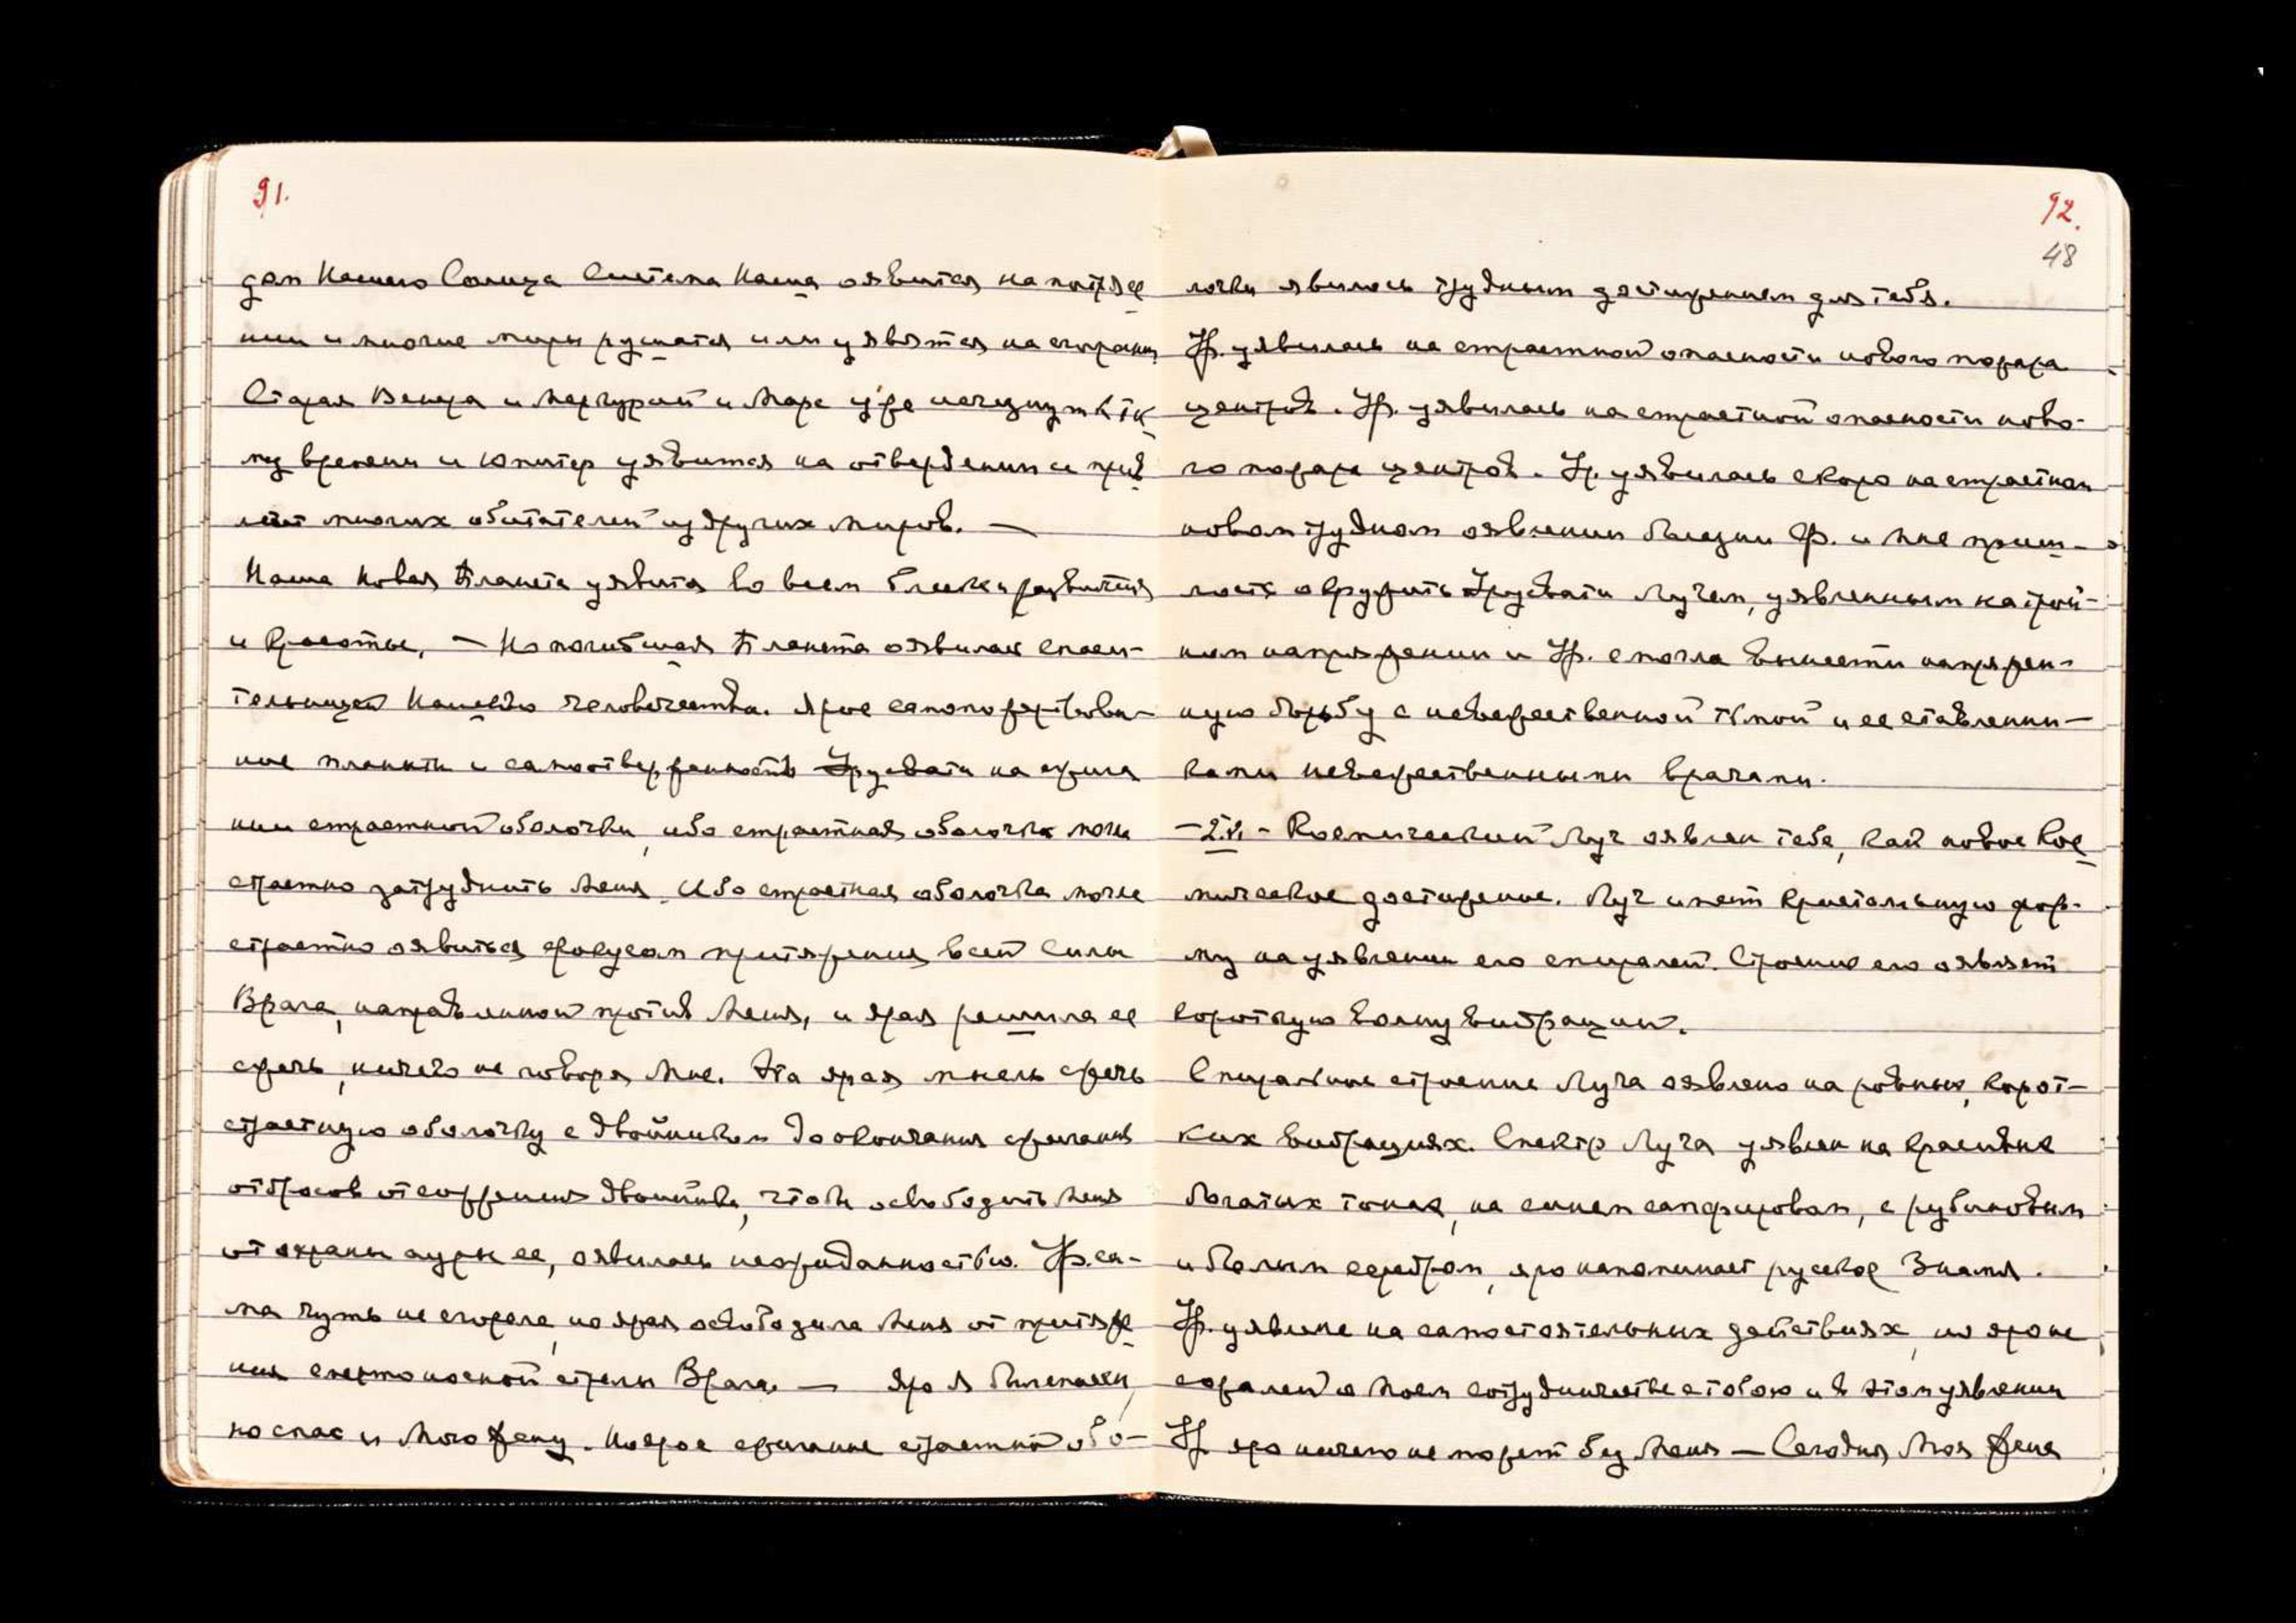 91.
дап Нашего Солнца Система Наша оявится на потрясе
нии и многие миры рушатся или уявятся на сгорании
Старая Венера и Меркурий и Марс уже исчезнут к тк
му времени и Юпитер уявится на отвердении и прив
лечёт многих обитателей из других миров. —
Наша Новая Планета уявится во всем блеске развития
и Красоты, — Но погибшая Планета оявилась спаси-
тельницей Нашего человечества. Ярое самопожертвова-
ние планеты и самоотверженность Урусвати на сжига
нии страстной оболочки, ибо страстная оболочка могла
страстно затруднить Меня. Ибо страстная оболочка могла
страстно оявиться фокусом притяжения всей силы
Врага, направленной против Меня, и ярая решила ее
сжечь, ничего не говоря Мне. Эта ярая мысль сжечь
страстную оболочку с двойником до окончания сжигания
отбросов от сожжения двойника, чтобы освободить Меня
от охраны ауры ее, оявилась неожиданностью. Ур. са-
ма чуть не сгорела, но ярая освободила Меня от притяже
ния смертоносной стрелы Врага. — Яро Я
но спас и Мою Жену. Но ярое сжигание страстной обо-
92.
48
лочки явилось трудным достижением для тебя.
Ур. уявилась на страстной опасности нового пожара
центров. Ур. уявилась на страстной опасности ново-
го пожара центров. Ур. уявилась скоро на страстном
новом трудном оявлении болезни Ф. и Мне приш-
лось окружить Урусвати Лучем, уявленным на трой-
ном напряжении и Ур. смогла вынести напряжен-
ную борьбу с невежественной тьмой и ее ставленни-
ками невежественными врачами.
— 2.V. — Космический Луч оявлен тебе, как новое Кос
мическое достижение. Луч имеет кристальную фор-
му на уявлении его спиралей. Строение его оявляет
короткую волну вибраций.
Спиральное строение Луча оявлено на ровных, корот-
ких вибрациях. Спектр Луча уявлен на красивых
богатых тонах, на синем сапфировом, с рубиновым
и белым серебром, яро напоминает русское Знамя.
Ур. уявлена на самостоятельных действиях, но яро не
сожалей о Моем сотрудничестве с тобою и в этом уявлении
Ур яро ничего не может без Меня — Сегодня Моя Жена